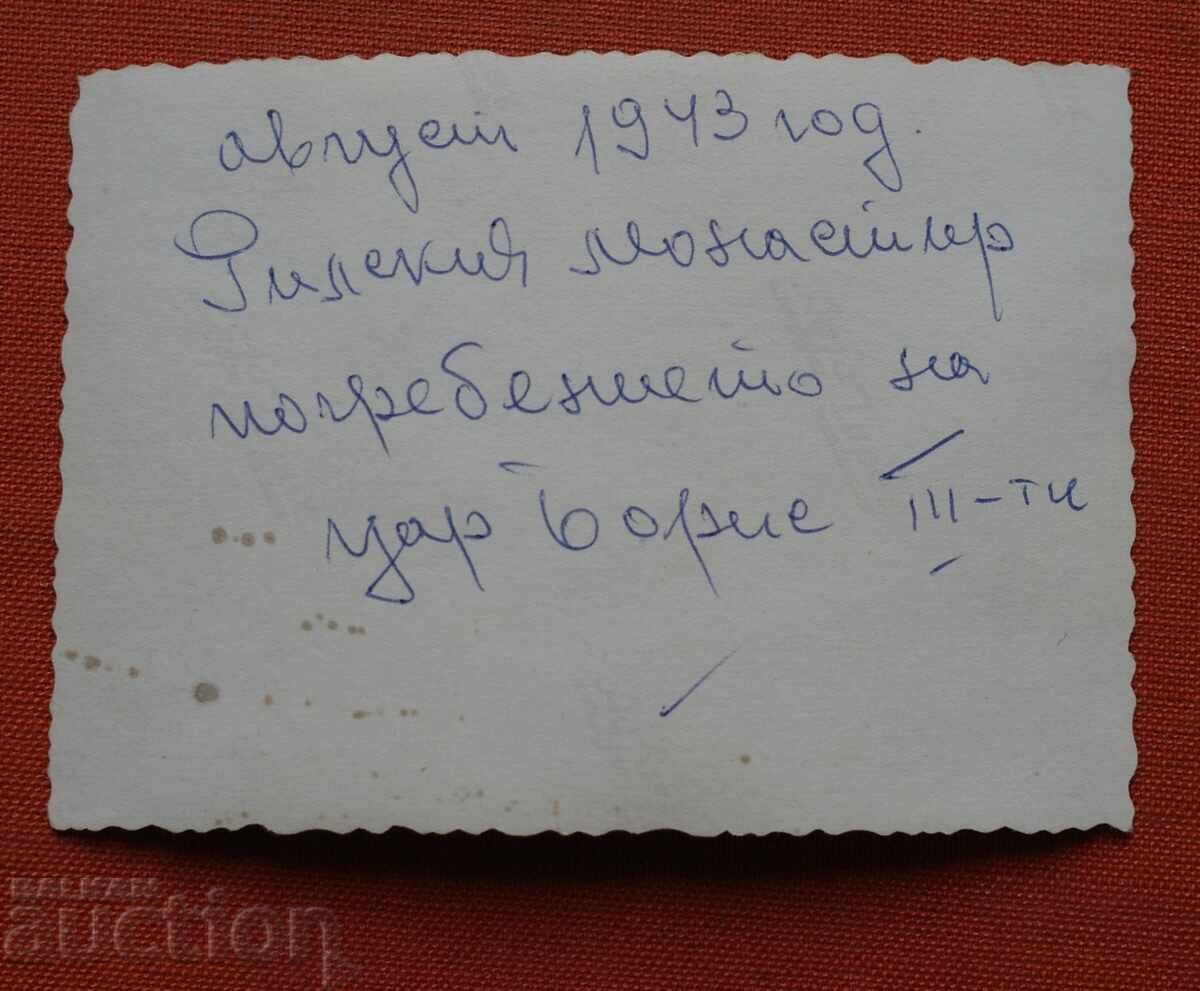 август 1943 год.
Рилския монастир
погребението на
цар Борис III-ти
BALKAN
auction